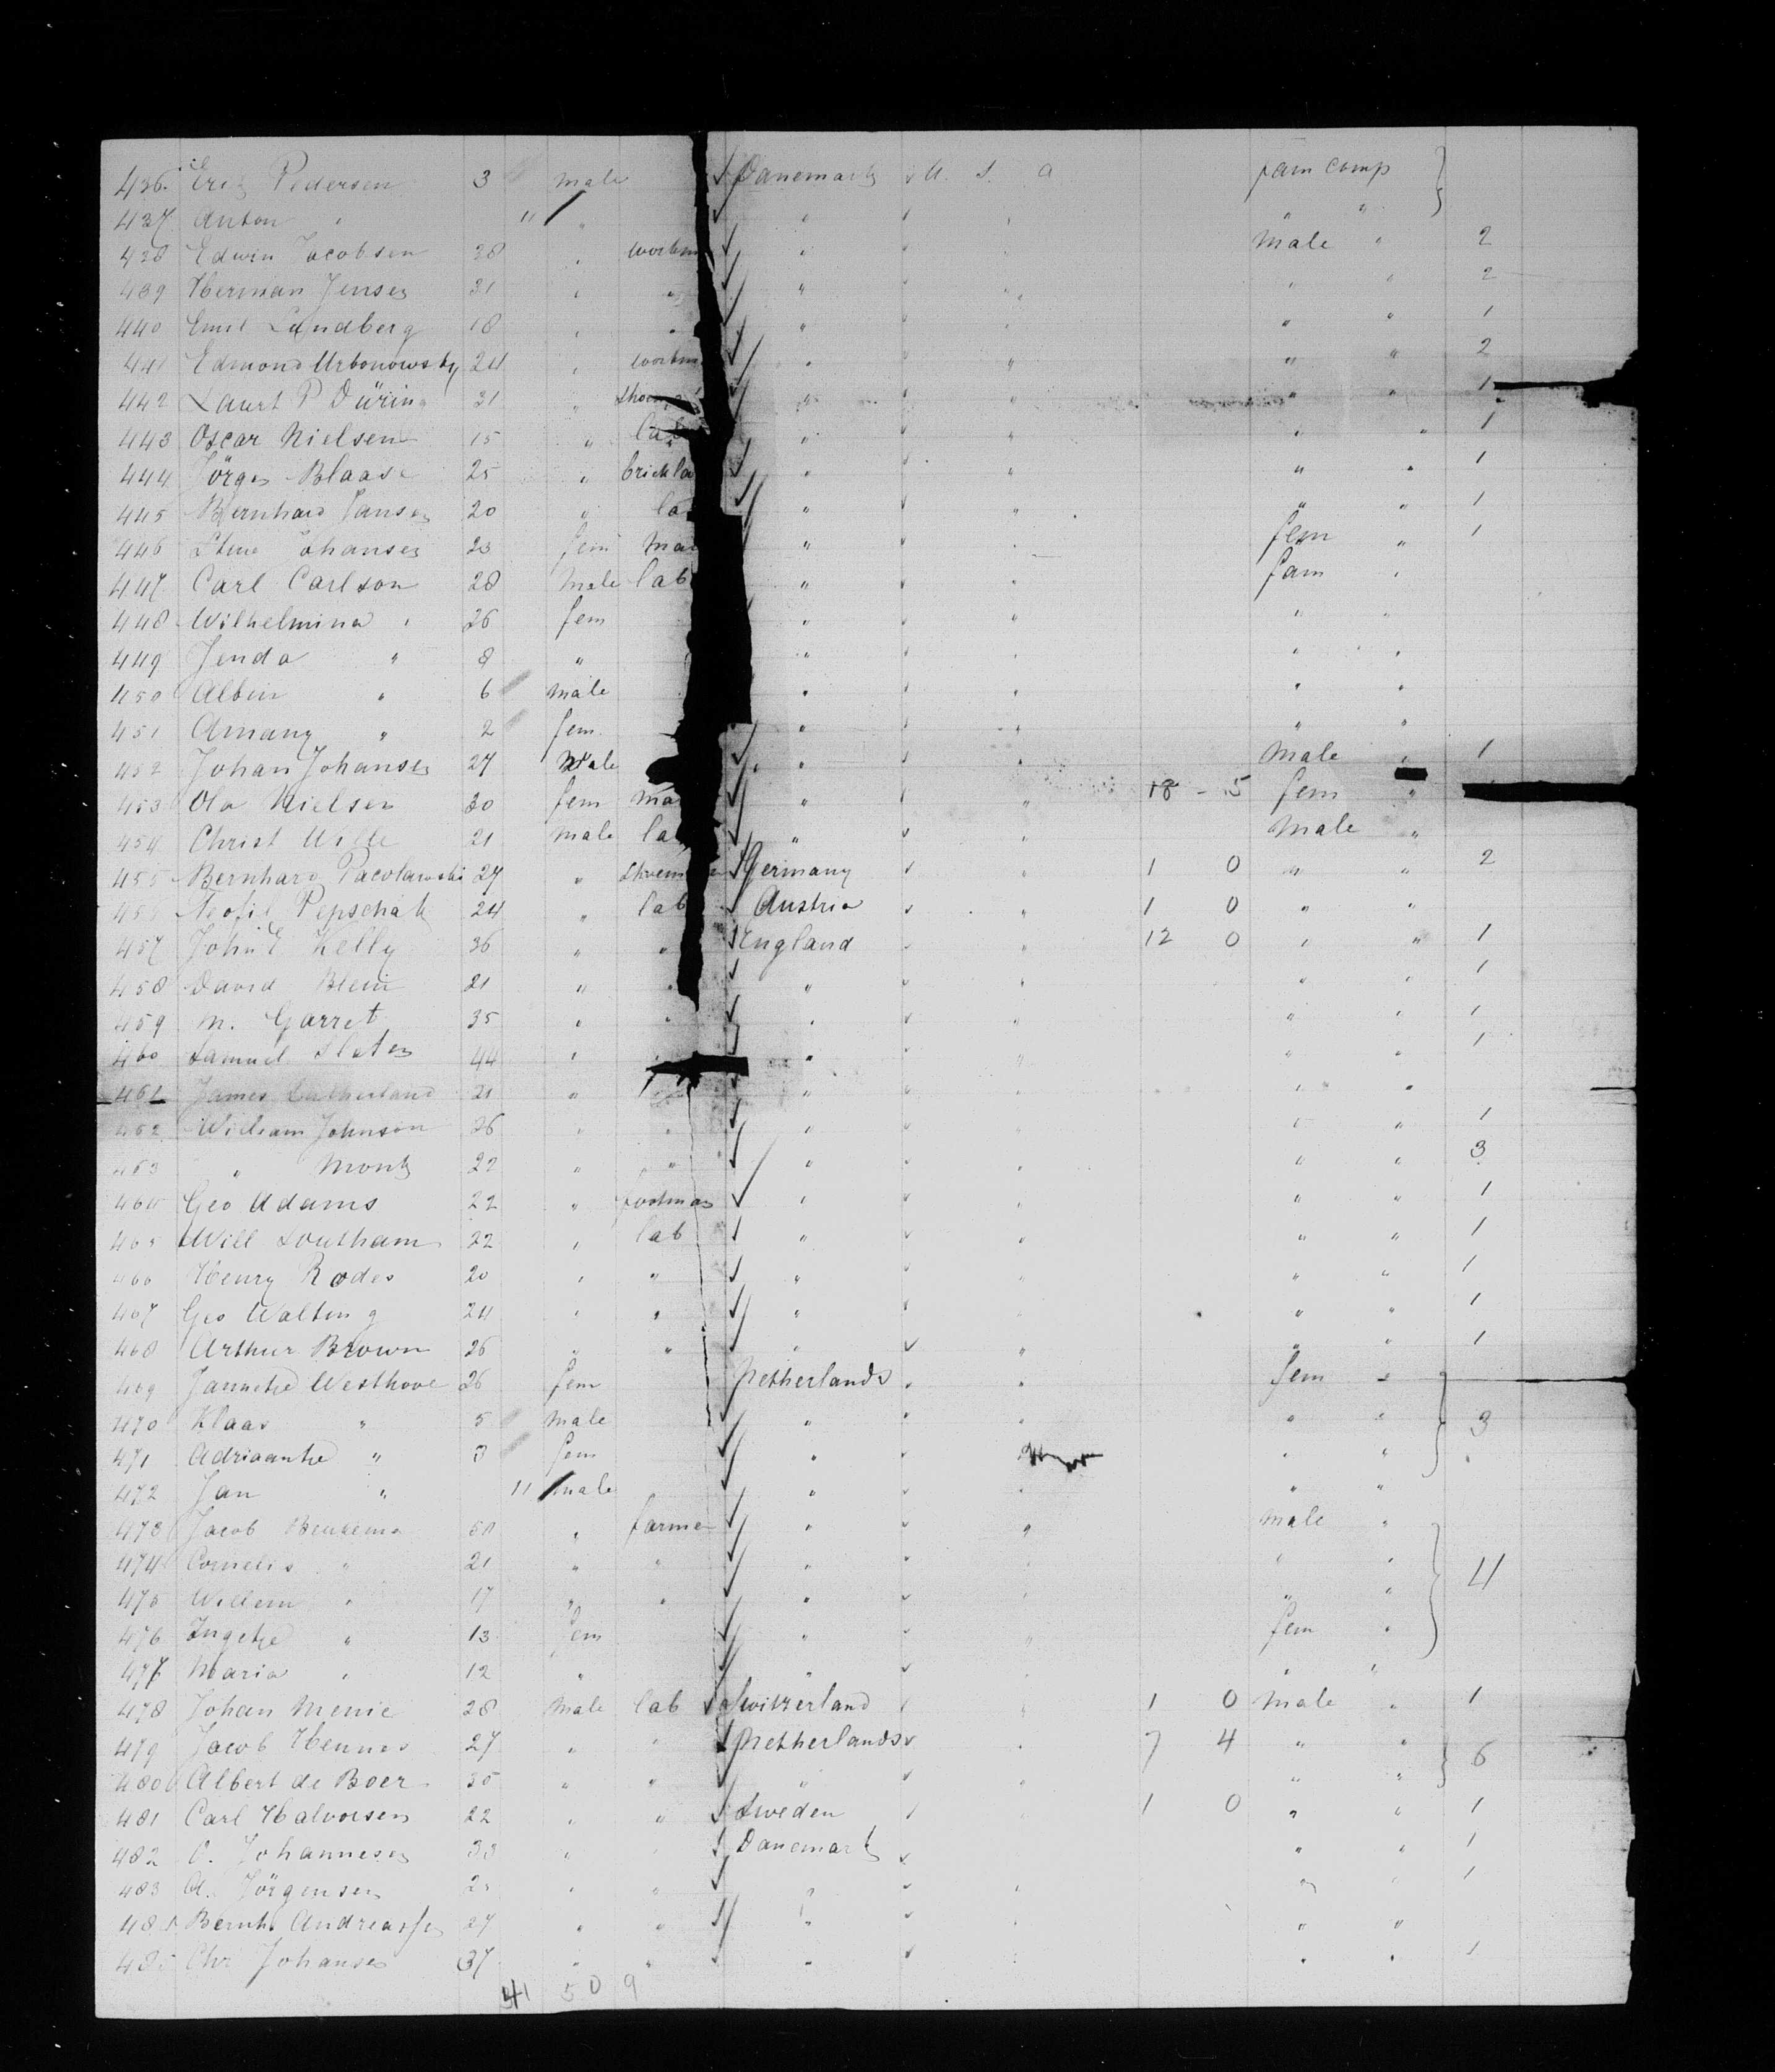 436. Erik Pedersen 3 male Danemark U. S. A fam comp
437 Anton " 11 " " " " "
438 Edwin Jacobsen 28 " workm " " male " 2
439 Herman Jensen 31 " " " " " " 2
440 Emil Lundberg 18 " " " " " " 1
441 Edmond Urbonowsky 24 " workm " " " " 2
442 Laurt P Düring 31 " " " " " 1
443 Oscar Nielsen 15 " lab " " " " 1
444 Jörgen Blaase 25 " brickla " " " " 1
445 Bernhard Jansen 20 " la " " " " 1
446 Johansen 23 fem mai " " fem " 1
447 Carl Carlson 28 male lab " " fam "
448 Wilhelmina " 26 fem " " " "
449 Jenda " 8 " " " " "
450 Albin " 6 male " " " "
451 Amany " 2 fem " " " "
452 Johan Johansen 27 male " " male " 1
453 Ola Nielsen 30 fem ma " " 18 - 5 fem "
454 Christ Wille 21 male la " " male "
455 Bernhard Pacolawski 27 " Germany " 1 0 " " 2
456 Teofil Pepschak 24 " lab Austria " 1 0 " "
457 John E Kelly 36 " " England " 12 0 " " 1
458 David Blein 21 " " " " " " 1
459 M. Garret 35 " " " " " " 1
460 Samuel Slaten 44 " " " " " " 1
461 James Sutherland 21 " " " " " "
462 William Johnson 26 " " " " " " 1
463 " Monk 22 " " " " " " 3
464 Geo Adams 22 " footman " " " " 1
465 Will Southam 22 " lab " " " " 1
466 Henry Rodes 20 " " " " " " 1
467 Geo Walting 24 " " " " " " 1
468 Arthur Brown 26 " " " " " " 1
469 Jannetje Westhove 26 fem Netherlands " fem "
470 Klaas " 5 male " " " " 3
471 Adriaantje " 3 fem " " "
472 Jan " 11 male " " " "
473 Jacob Beukema 50 " farmer " " male "
474 Cornelis " 21 " " " " " " 4
475 Willem " 17 " " " " " "
476 Ingetje " 13 fem " " fem "
477 Maria " 12 " " " " "
478 Johan Menie 28 male lab Switzerland " 1 0 male " 1
479 Jacob Hennes 27 " " Netherlands " 7 4 " " 6
480 Albert de Boer 35 " " " " " "
481 Carl Halvorsen 22 " " Sweden " 1 0 " " 1
482 O. Johannesen 33 " " Danemark " " 1
483 A. Jörgensen " " " " " " 1
484 Bernh. Andreassen 27 " " " " " "
485 Chr Johansen 37 " " " " " " 1
41 50 9